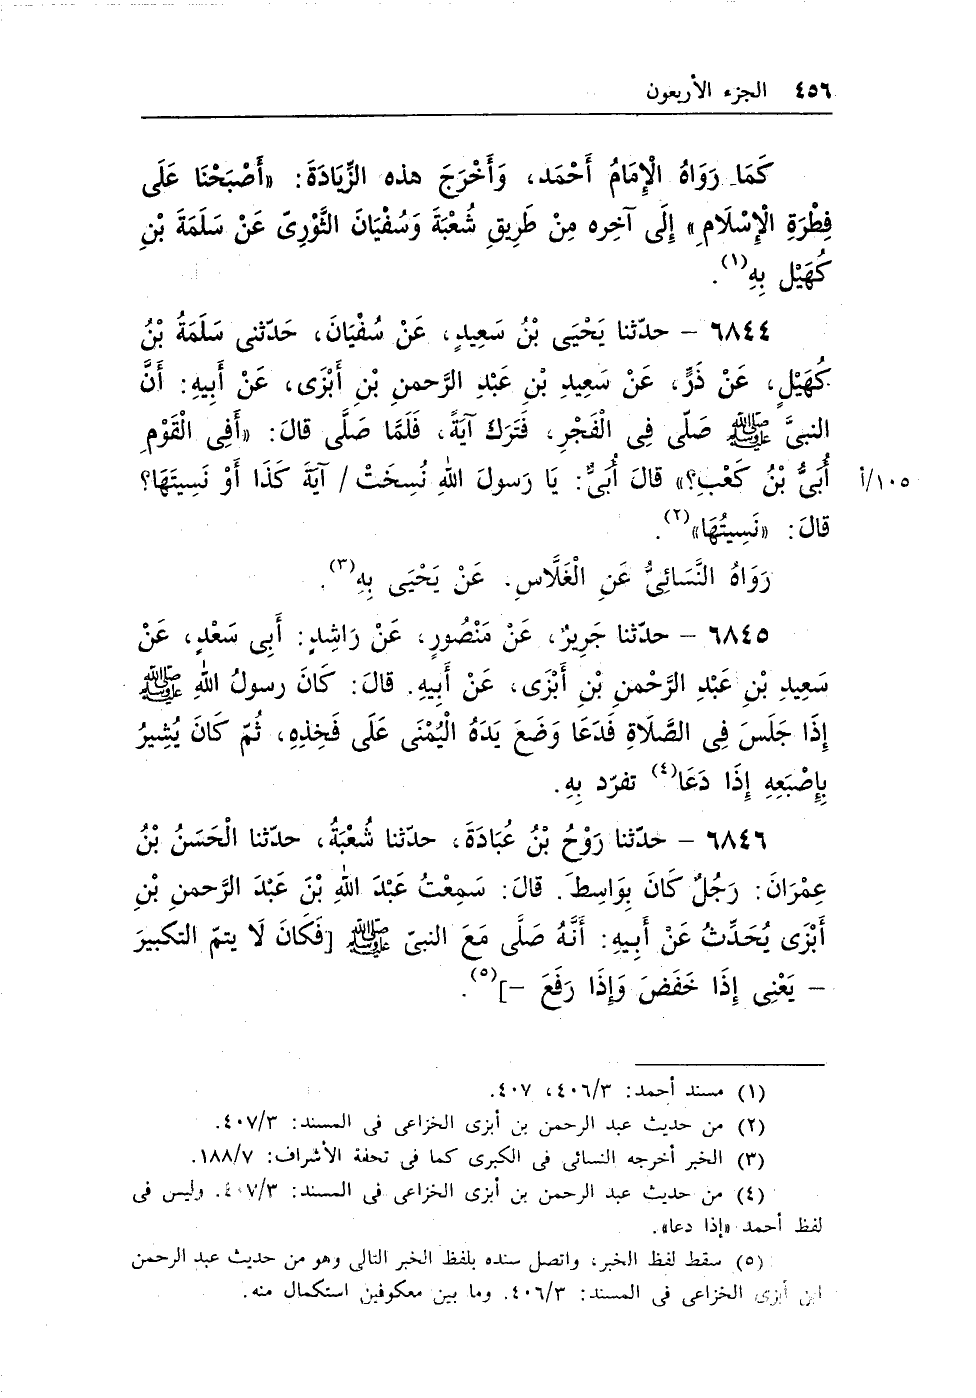 ٤٥٦ الجزء الأربعون
كَمَا رَوَاهُ الْإِمَامُ أَحْمَد، وَأَخْرَجَ هذه الزِّيَادَةَ: «أَصْبَحْنَا عَلَى
فِطْرَةِ الْإِسْلَامِ» إِلَى آخِرِه مِنْ طَرِيقِ شُعْبَةَ وَسُفْيَانَ الثَّوْرِىّ عَنْ سَلَمَةَ بْنِ
كُهَيْل بِهِ(١).
٦٨٤٤ - حدّثنا يَحْيَى بْنُ سَعِيدٍ، عَنْ سُفْيَانَ، حَدّثنى سَلَمَةُ بْنُ
كُهَيْلٍ، عَنْ ذَرٍّ، عَنْ سَعِيدِ بْنِ عَبْدِ الرَّحمنِ بْنِ أَبْزَى، عَنْ أَبِيهِ: أَنَّ
النبىَّ ﷺ صَلّى فِى الْفَجْرِ، فَتَرَكَ آيَةً، فَلَمَّا صَلَّى قالَ: «أَفِى الْقَوْمِ
أُبَىُّ بْنُ كَعْبٍ؟» قالَ أُبَىٌّ: يَا رَسولَ اللهِ نُسِخَتْ / آيَةَ كَذَا أَوْ نَسِيتَهَا؟ ١٠٥/أ
قالَ: «نَسِيتُهَا»(٢).
رَوَاهُ النَّسَائِىُّ عَنِ الْغَلَّاسِ. عَنْ يَحْيَى بِهِ(٣).
٦٨٤٥ - حدّثنا جَرِيرٌ، عَنْ مَنْصُورٍ، عَنْ رَاشِدٍ: أَبِى سَعْدٍ، عَنْ
سَعِيدِ بْنِ عَبْدِ الرَّحْمنِ بْنِ أَبْزَى، عَنْ أَبِيهِ. قالَ: كَانَ رسولُ اللهِ ﷺ
إِذَا جَلَسَ فِى الصَّلَاةِ فَدَعَا وَضَعَ يَدَهُ الْيُمْنَى عَلَى فَخِذِهِ، ثُمّ كَانَ يُشِيرُ
بِإِصْبَعِهِ إِذَا دَعَا(٤) تفرّد بِهِ.
٦٨٤٦ - حدّثنا رَوْحُ بْنُ عُبَادَةَ، حدّثنا شُعْبَةُ، حدّثنا الْحَسَنُ بْنُ
عِمْرَانَ: رَجُلٌ كَانَ بِوَاسِطَ. قالَ: سَمِعْتُ عَبْدَ اللهِ بْنَ عَبْدَ الرَّحمنِ بْنِ
أَبْزَى يُحَدِّثُ عَنْ أَبِيهِ: أَنَّهُ صَلَّى مَعَ النبىّ ﷺ [فَكَانَ لَا يتمّ التكبيرَ
- يَعْنِى إِذَا خَفَضَ وَإِذَا رَفَعَ -](٥).
(١) مسند أحمد: ٤٠٦/٣، ٤٠٧.
(٢) من حديث عبد الرحمن بن أبزى الخزاعى فى المسند: ٤٠٧/٣.
(٣) الخبر أخرجه النسائى فى الكبرى كما فى تحفة الأشراف: ١٨٨/٧.
(٤) من حديث عبد الرحمن بن أبزى الخزاعى فى المسند: ٤٠٧/٣. وليس فى
لفظ أحمد «إذا دعا».
(٥) سقط لفظ الخبر، واتصل سنده بلفظ الخبر التالى وهو من حديث عبد الرحمن
ابن أبزى الخزاعى فى المسند: ٤٠٦/٣. وما بين معكوفين استكمال منه.